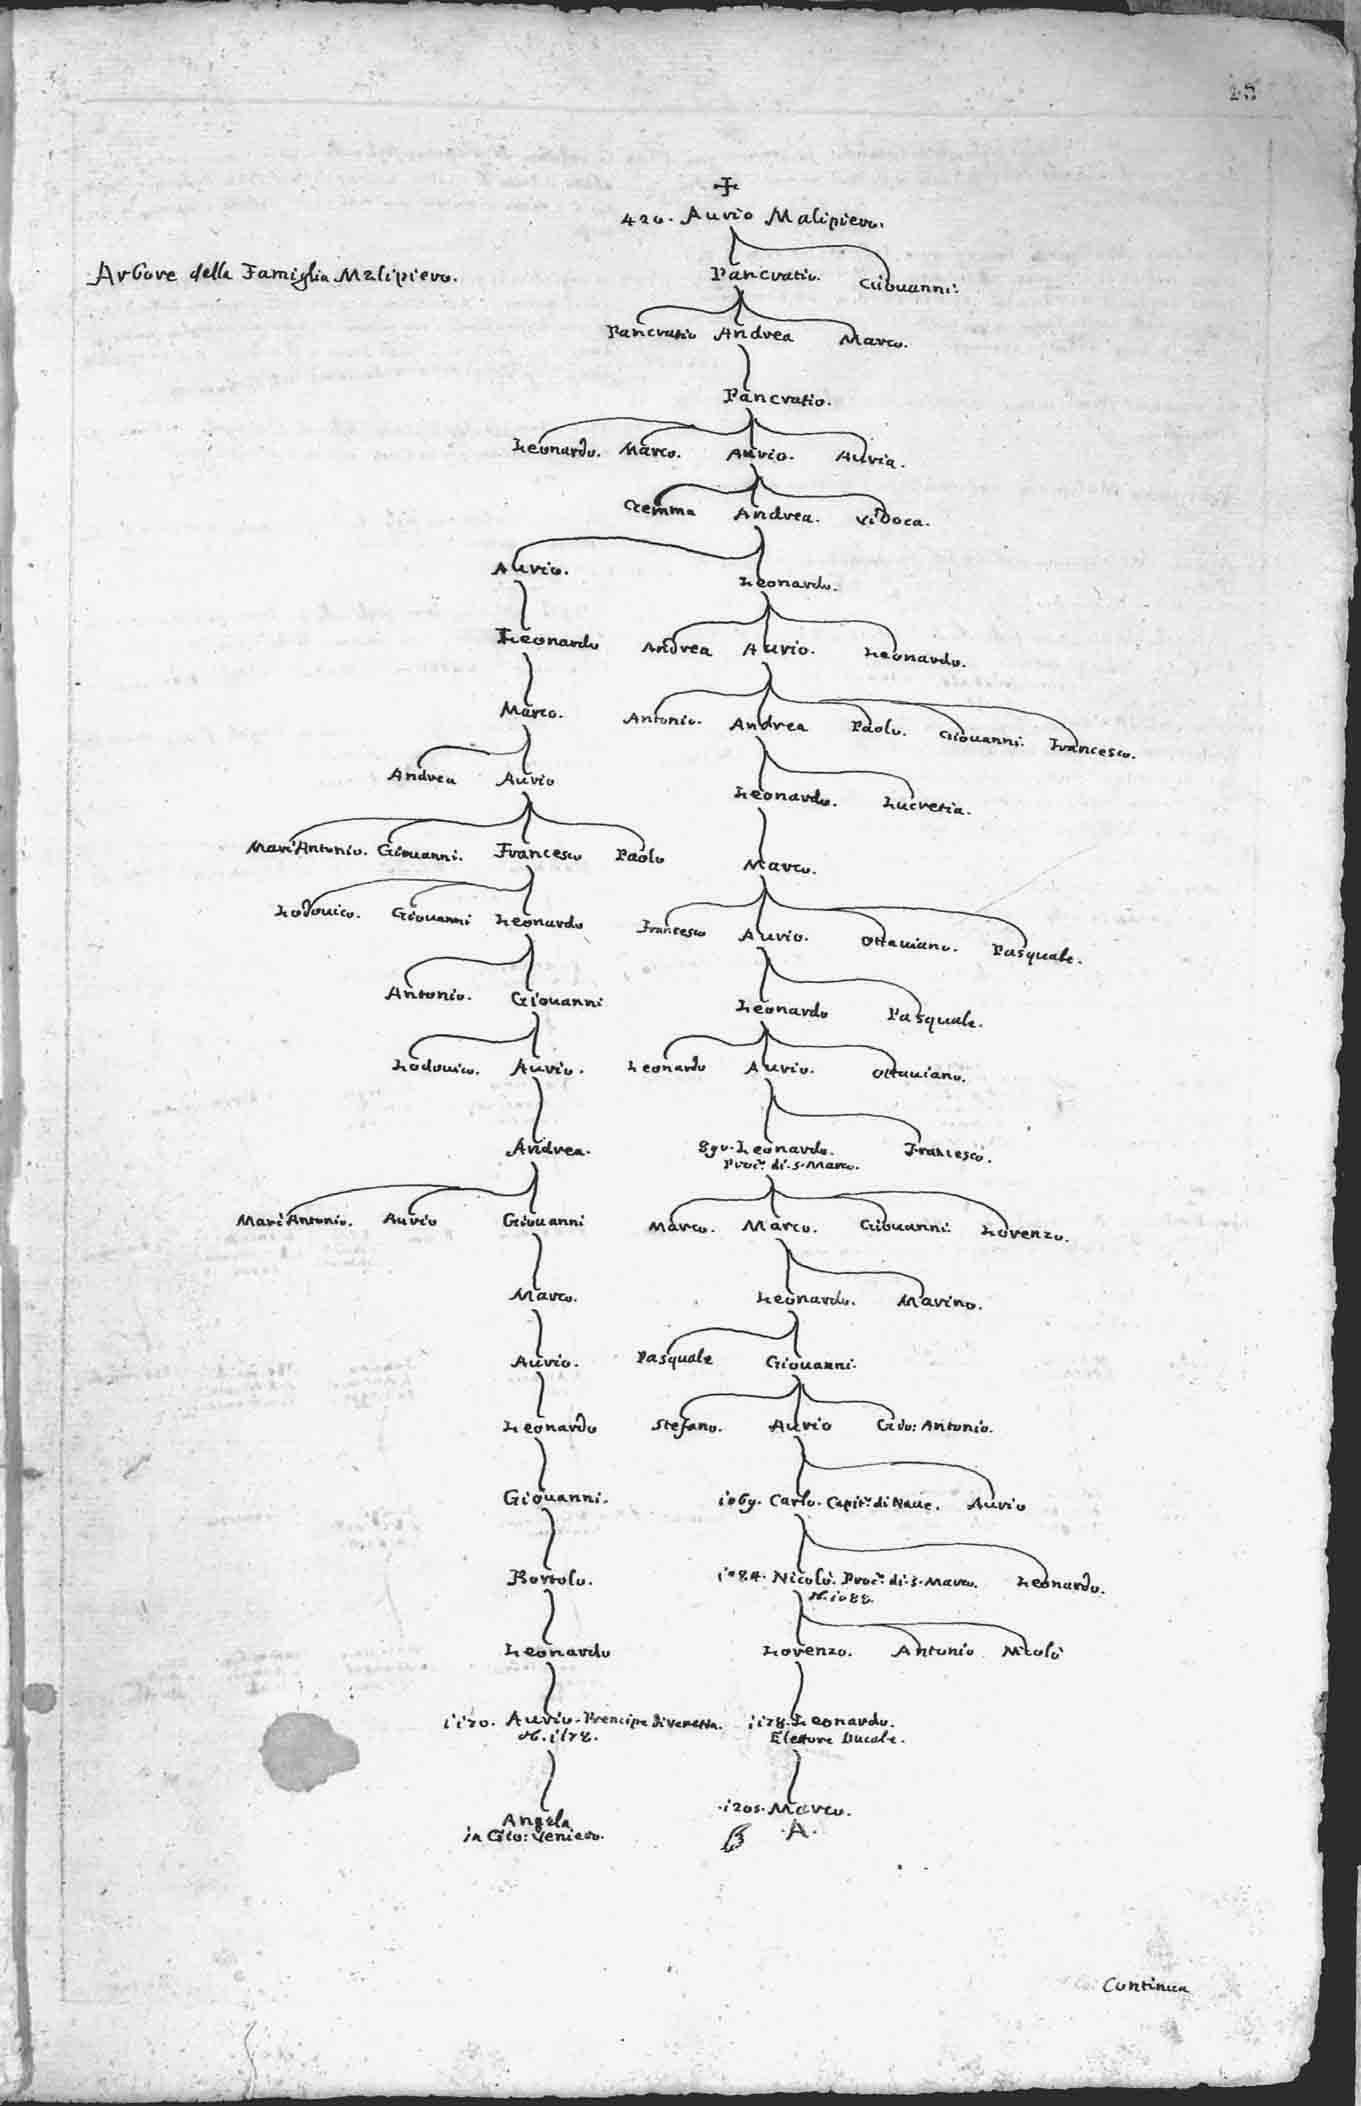 420. Aurio Malipiero.
Arbore della Famiglia Malipiero.
Pancratio. Giouanni.
Pancratio Andrea Marco.
Pancratio.
Leonardo. Marco. Aurio. Auria.
Gemma Andrea. Vidoca.
Aurio. Leonardo.
Leonardo Andrea Aurio. Leonardo.
Marco. Antonio. Andrea Paolo. Giouanni. Francesco.
Andrea Aurio Leonardo. Lucretia.
Mari'Antonio. Giouanni. Francesco Paolo Marco.
Lodouico. Giouanni Leonardo Francesco Aurio. Ottauiano. Pasquale.
Antonio. Giouanni Leonardo Pasquale.
Lodouico. Aurio. Leonardo Aurio. Ottauiano.
Andrea. 890. Leonardo. Francesco.
Procr. di. S. Marco.
Mari'Antonio. Aurio Giouanni Marco. Marco. Giouanni Lorenzo.
Marco. Leonardo. Marino.
Aurio. Pasquale Giouanni.
Leonardo Stefano. Aurio Gio: Antonio.
Giouanni. 1069. Carlo. Capitn. di Naue. Aurio
Bortolo. 1084. Nicolò. Procr. di. S. Marco. Leonardo.
M. 1088.
Leonardo Lorenzo. Antonio Nicolò
1170. Aurio. Prencipe di Venetia. 1178. Leonardo.
M. 1178. Elettore Ducale.
Angela 1205. Marco.
in Gio: Veniero. A.
Continua